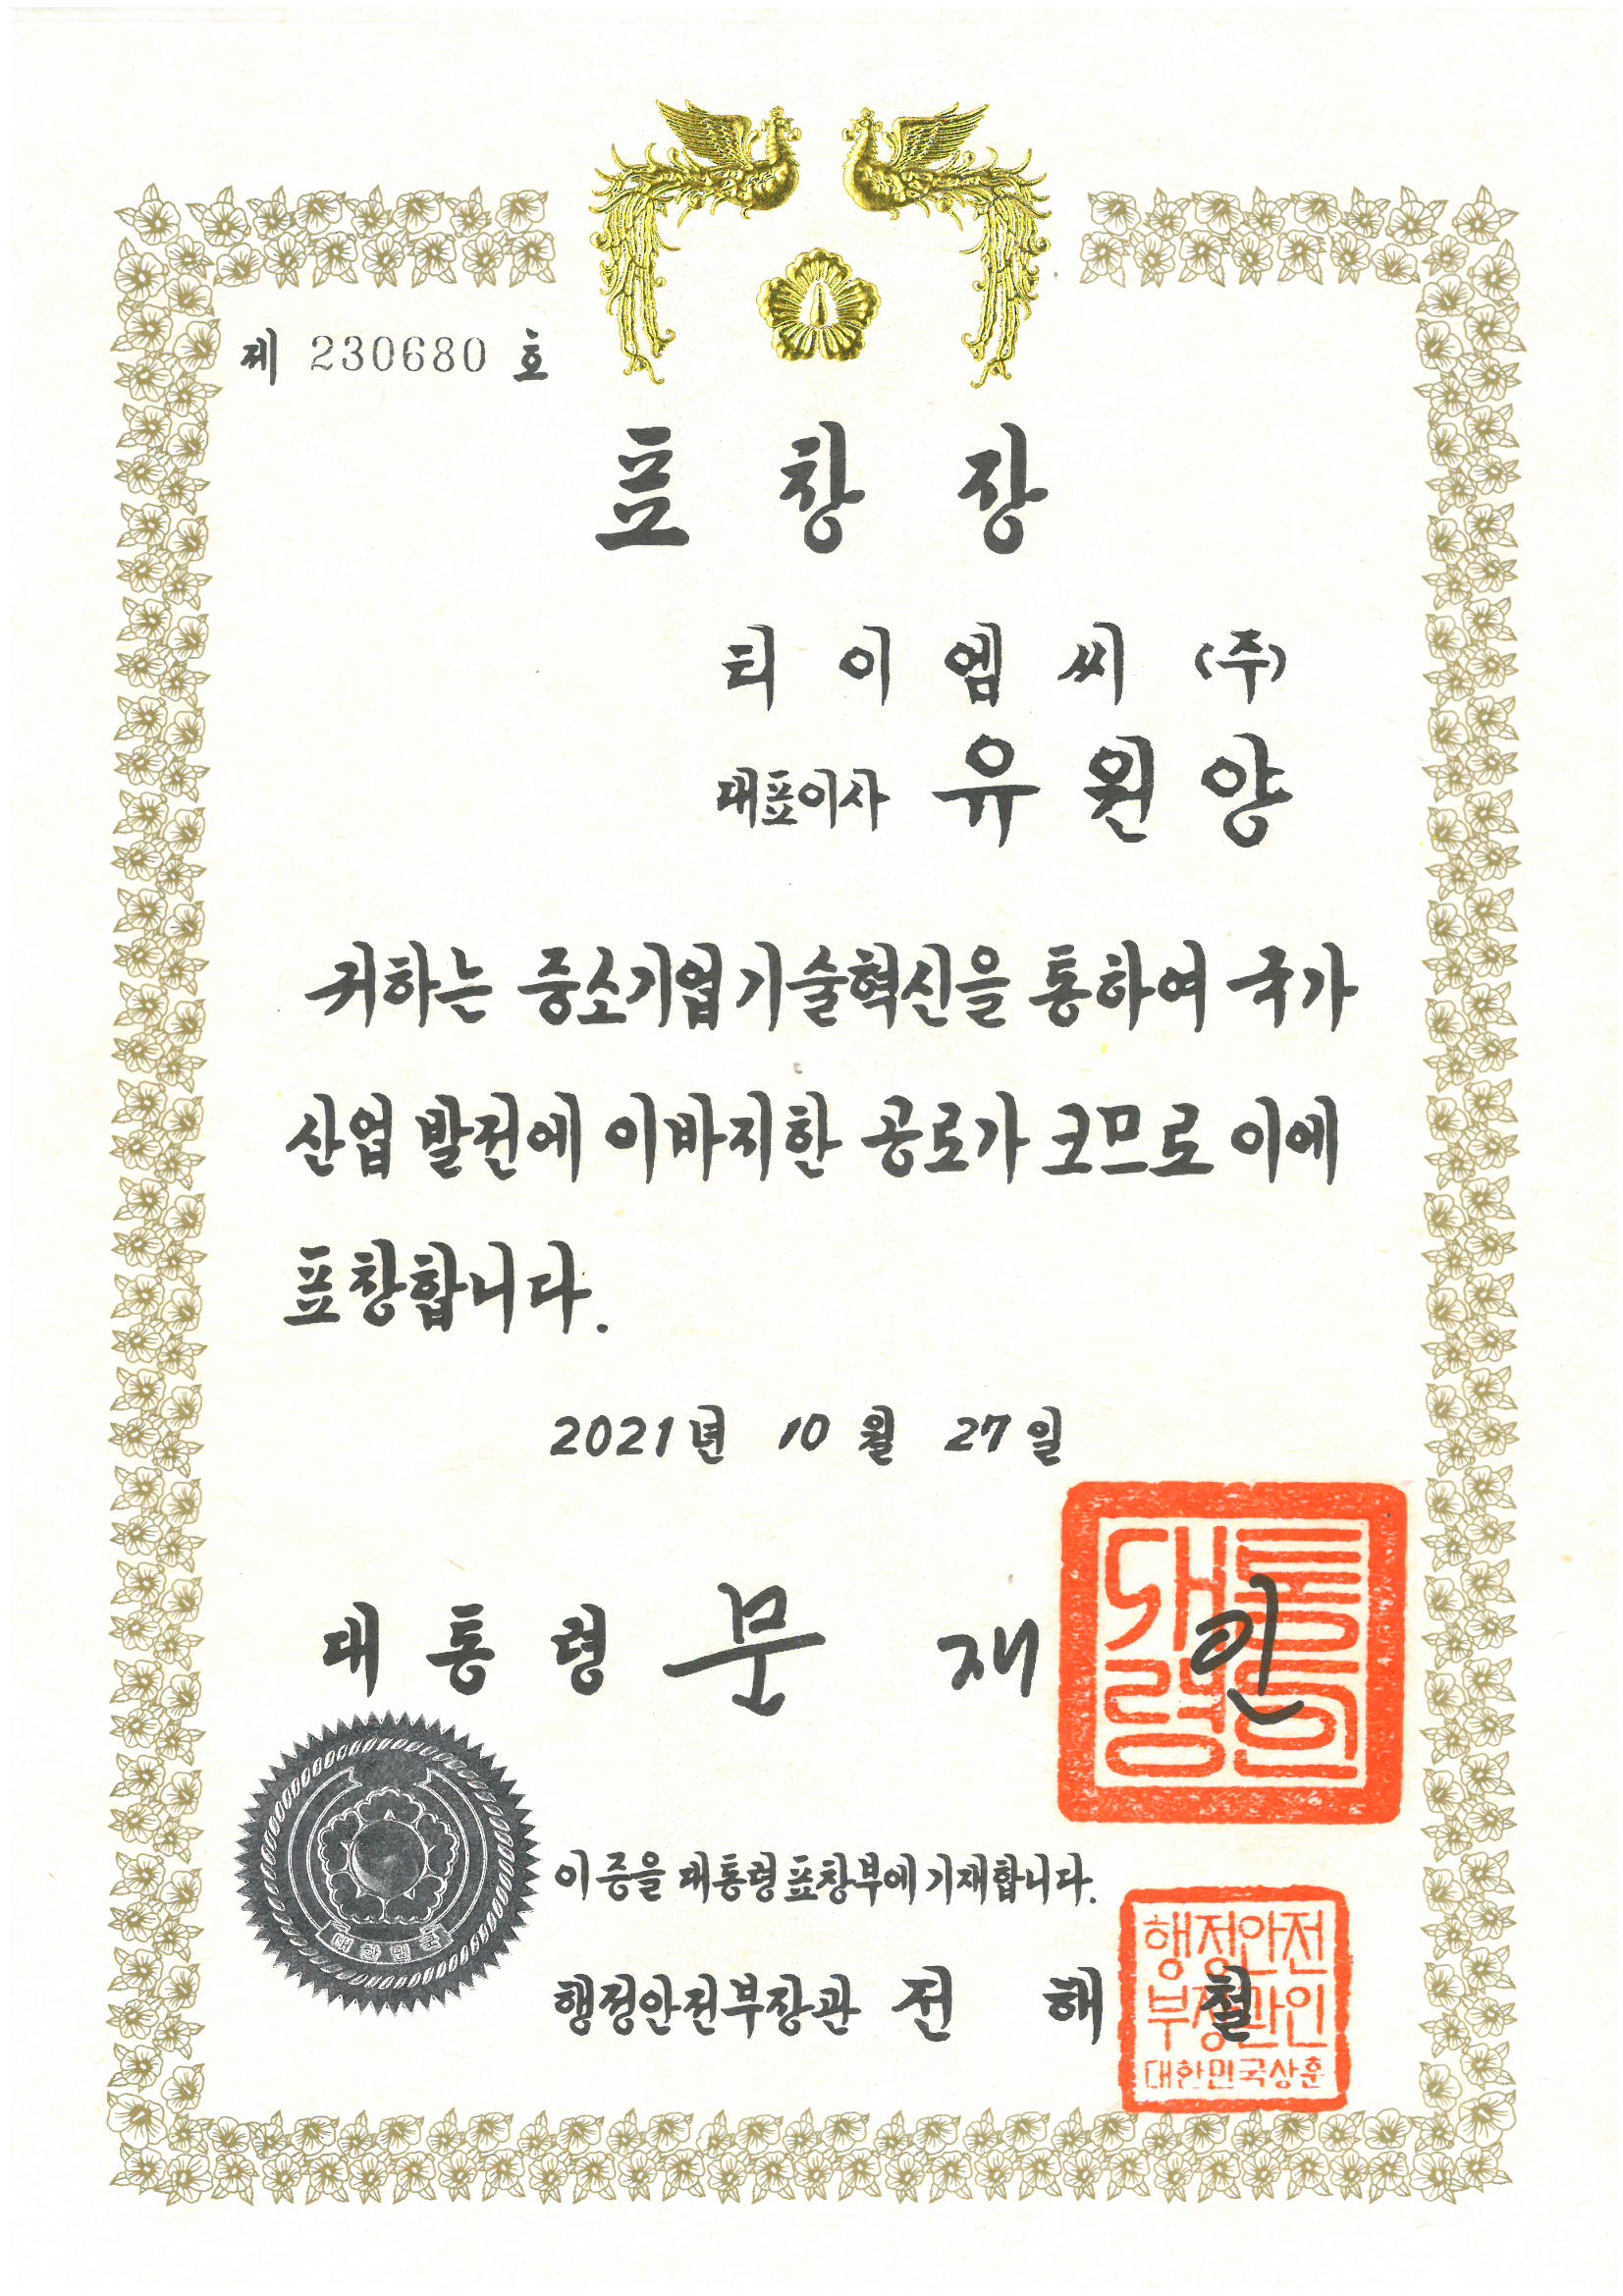 제 230680 호
표 창 장
티 이 엠 씨 (주)
대표이사 유 원 양
귀하는 중소기업 기술혁신을 통하여 국가
산업 발전에 이바지한 공로가 크므로 이에
표창합니다.
2021년 10 월 27 일
대 통 령 문 재 인
대통령인
대한민국
이 증을 대통령 표창부에 기재합니다.
행정안전부장관 전 해 철
행정안전
부장관인
대한민국상훈